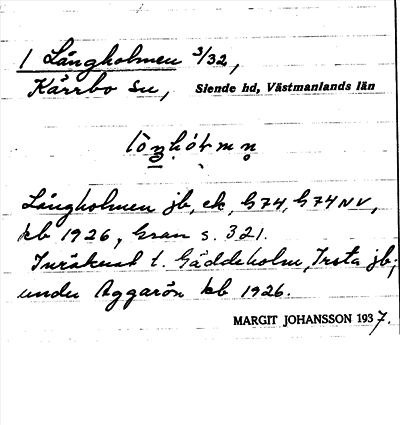 1 Långholmen 3/32,
Kärrbo sn, Siende hd, Västmanlands län
Långholmen jb, ek, G74, G74NV,
kb 1926, Gran s. 321.
Inräknat t. Gäddeholm, Irsta jb;
under Aggarön kb 1926.
MARGIT JOHANSSON 1937.